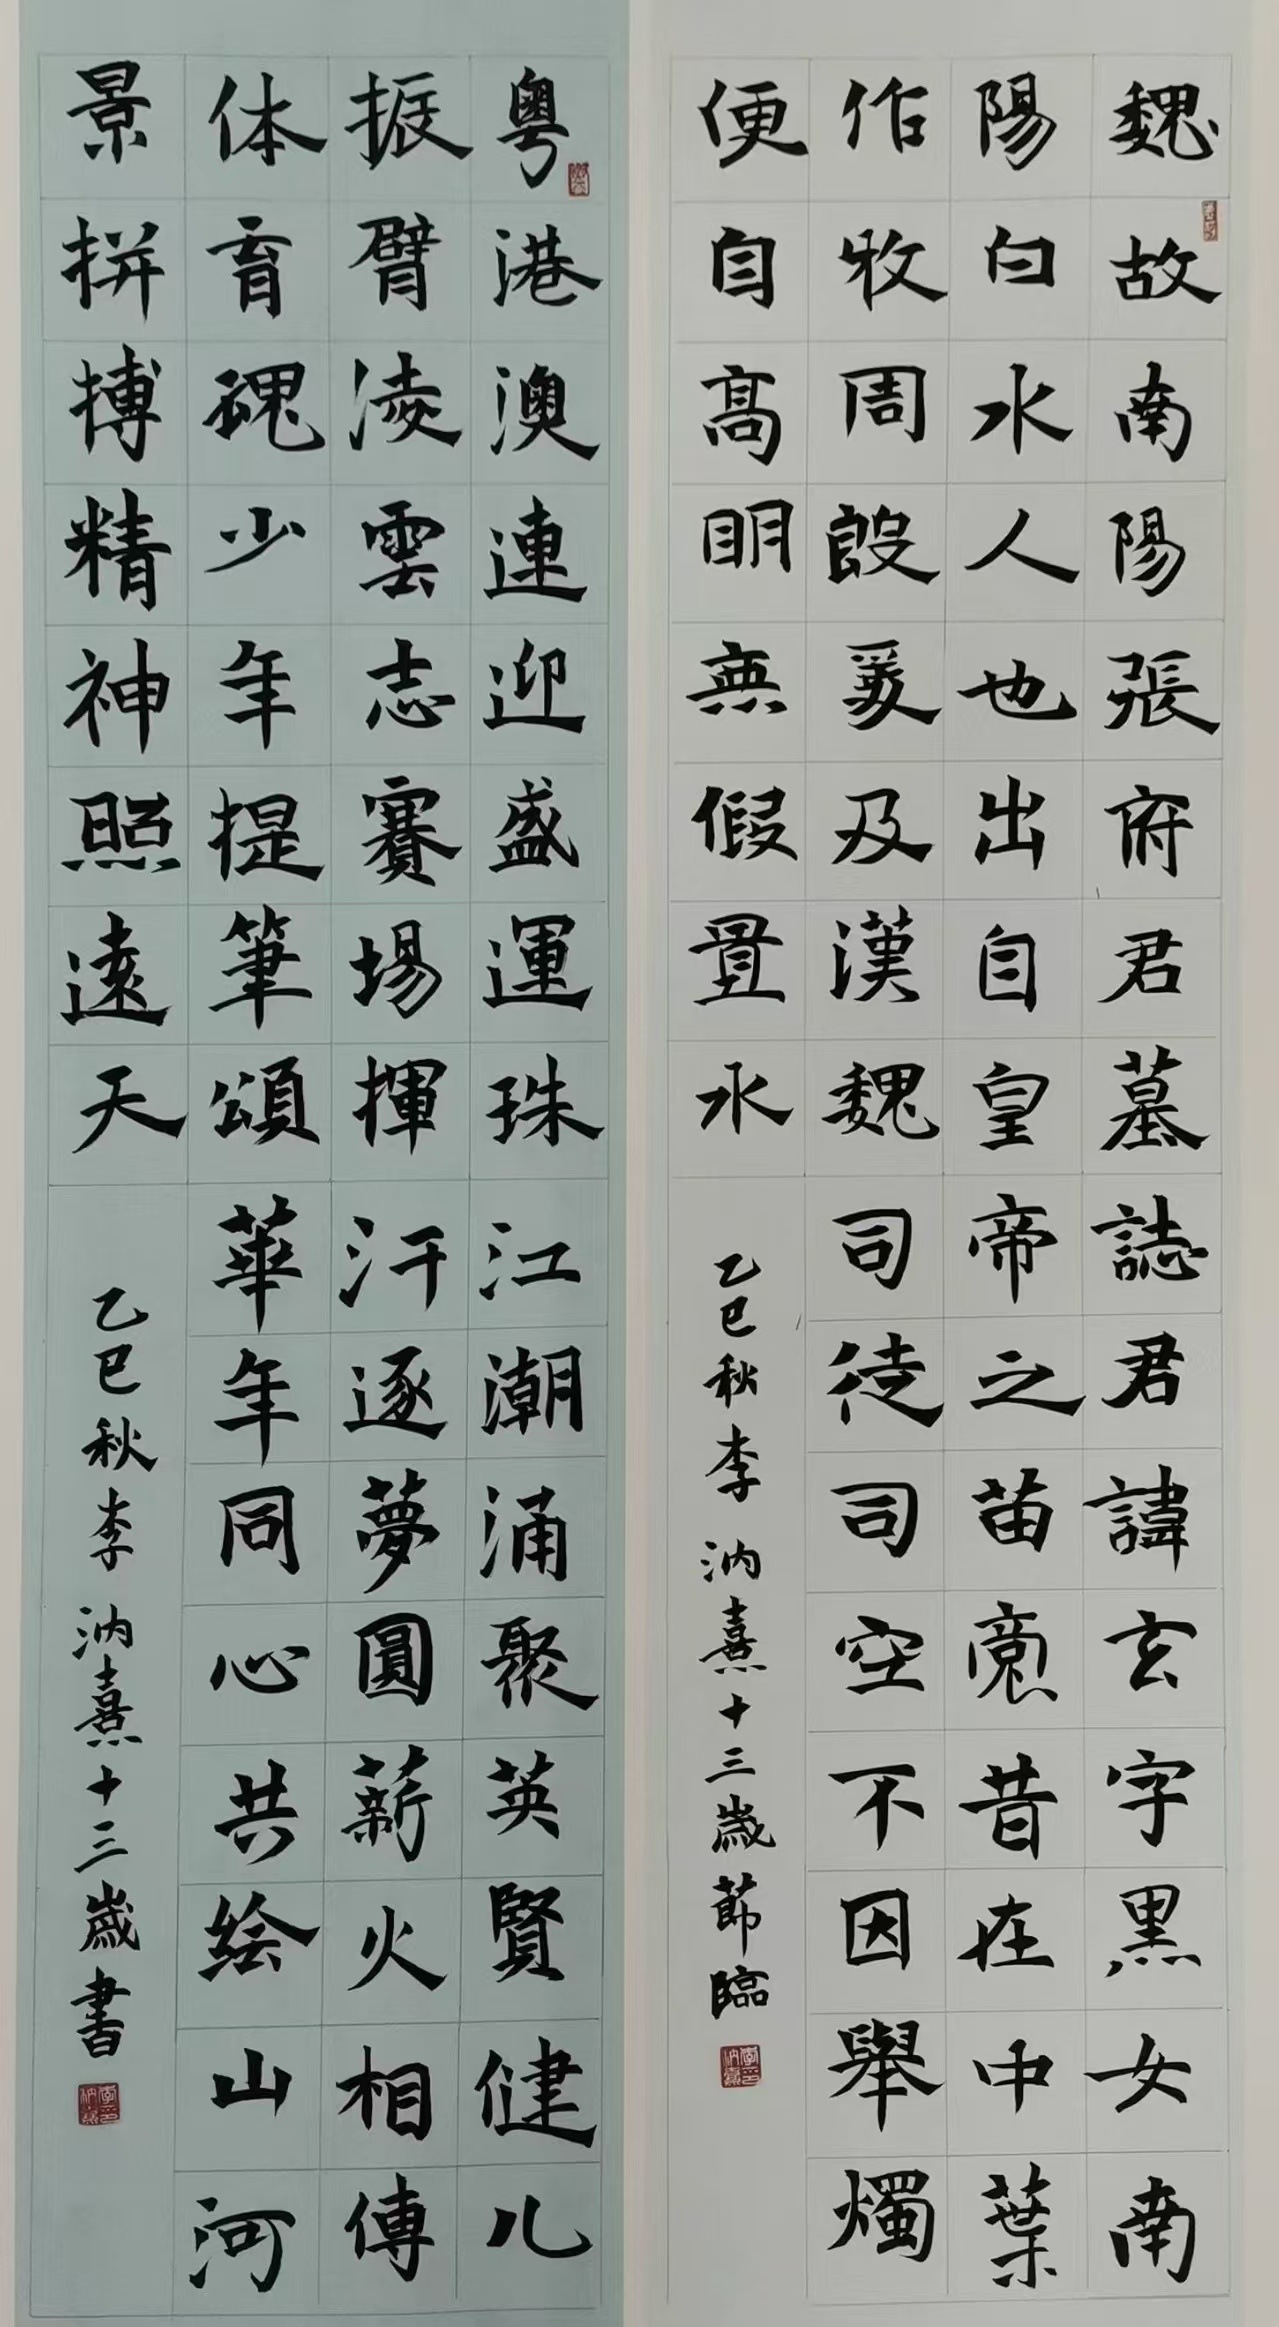 魏故南陽張府君墓誌君諱玄字黑女南
陽白水人也出自皇帝之苗裔昔在中葉
作牧周殷爰及漢魏司徒司空不因舉燭
便自高明無假置水
乙巳秋李汭熹十三歲節臨
粵港澳連迎盛運珠江潮涌聚英賢健儿
振臂凌雲志賽場揮汗逐夢圓薪火相傳
体育魂少年提筆頌華年同心共绘山河
景拼搏精神照遠天
乙巳秋李汭熹十三歲書